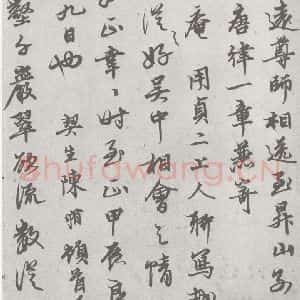 尊師相昇山
唐律一章兼寄
庵 用貞二上人聊寫
好吳中相會之情
正時至正甲辰良
九日也 契生陳頓首
壑千巖翠流數從
Shufawang.CN